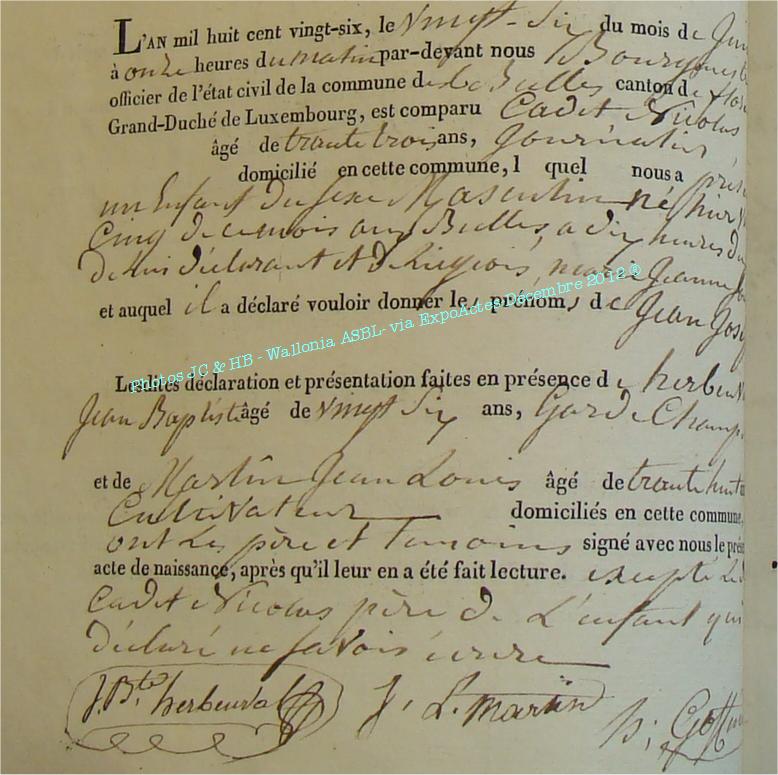 L'AN mil huit cent vingt-six, le vingt-Six du mois de Juin
à onze heures du matin par-devant nous Bourgmestre
officier de l'état civil de la commune de Les Bulles canton de
Grand-Duché de Luxembourg, est comparu Cadet Nicolas
âgé de traute trois ans, Journalier
domicilié en cette commune, l quel nous a
un Enfant du sexe Masculin né hier
Cinq de ce mois aux Bulles, a dix heures du
De lui déclarant et De Liegeois, Jeanne
et auquel il a déclaré vouloir donner le s prénom s de Jean
Photos JC & HB - Wallonia ASBL- via ExpoActes Décembre 2012 ®
Lesdites déclaration et présentation faites en présence de herbeuv
Jean Baptiste âgé de vingt Six ans, Garde Champ
et de Martin Jean Louis âgé de traute huit
Cultivateur domiciliés en cette commune,
ont Les père et temoins signé avec nous le
acte de naissance, après qu'il leur en a été fait lecture. excepté Led
Cadet Nicolas père de L'enfant qui
déclaré ne savois écrire
J. Bte herbeuval J. L. Martin